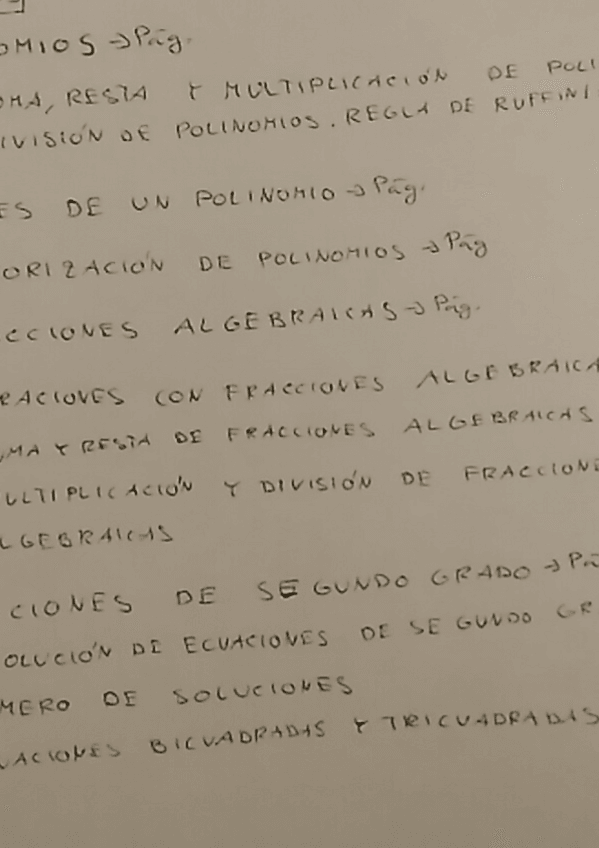 OMIOS → Pág.
OMA, RESTA Y MULTIPLICACIÓN DE POLI
IVISIÓN DE POLINOMIOS. REGLA DE RUFFINI
ES DE UN POLINOMIO → Pág.
ORIZACIÓN DE POLINOMIOS → Pág
CCIONES ALGEBRAICAS → Pág.
RACIONES CON FRACCIONES ALGEBRAICA
UMA Y RESTA DE FRACCIONES ALGEBRAICAS
ULTIPLICACIÓN Y DIVISIÓN DE FRACCIONE
LGEBRAICAS
CIONES DE SEGUNDO GRADO → Pá
OLUCIÓN DE ECUACIONES DE SEGUNDO GR
MERO DE SOLUCIONES
UACIONES BICUADRADAS Y TRICUADRADAS